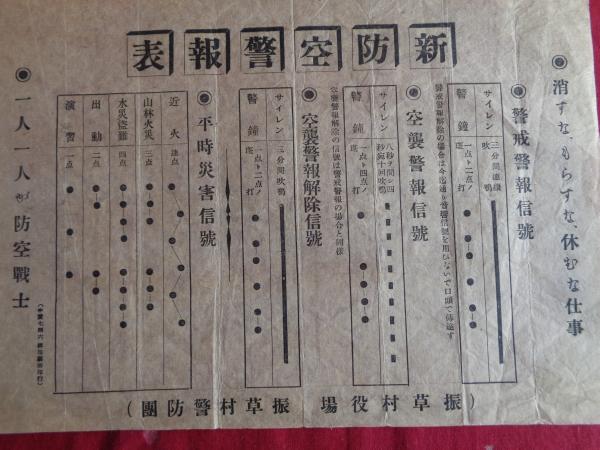 新防空警報表
◉消すな、もらすな、休むな仕事
◉警戒警報信號
サイレン 三分間連續吹鳴
警鐘 一点ト二点ノ班打
警戒警報解除の場合は今迄通り音響信號を用ひないで口頭で傳達す
◉空襲警報信號
サイレン 八秒ヲ間シ四秒宛十回吹鳴
警鐘 一点ト四点ノ班打
◉空襲警報解除信號
空襲警報解除の信號は警戒警報の場合と同樣
サイレン 三分間吹鳴
警鐘 一点ト二点ノ班打
◉平時災害信號
近火 連点
山林火災 三点
水災盜難 四点
出動 二点
演習 一点
◉一人一人が防空戰士
(振草村役場 振草村警防團)